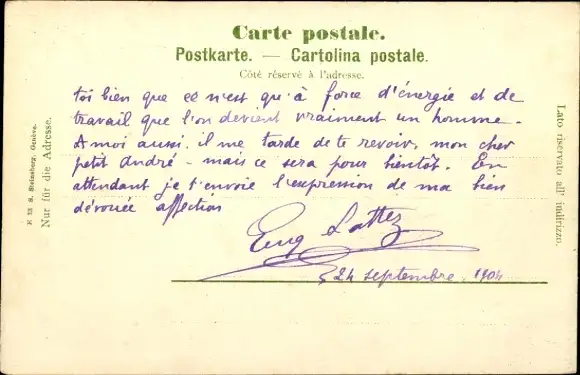 Carte postale.
Postkarte. — Cartolina postale.
Côté réservé à l'adresse.
toi bien que ce n'est qu'à force d'énergie et de
travail que l'on devient vraiment un homme.
A moi aussi, il me tarde de te revoir, mon cher
petit André - mais ce sera pour bientôt. En
attendant je t'envoie l'expression de ma bien
dévouée affection
Eug Lattez
24 septembre 1904
Nur für die Adresse.
Genève.
Lato riservato all' indirizzo.